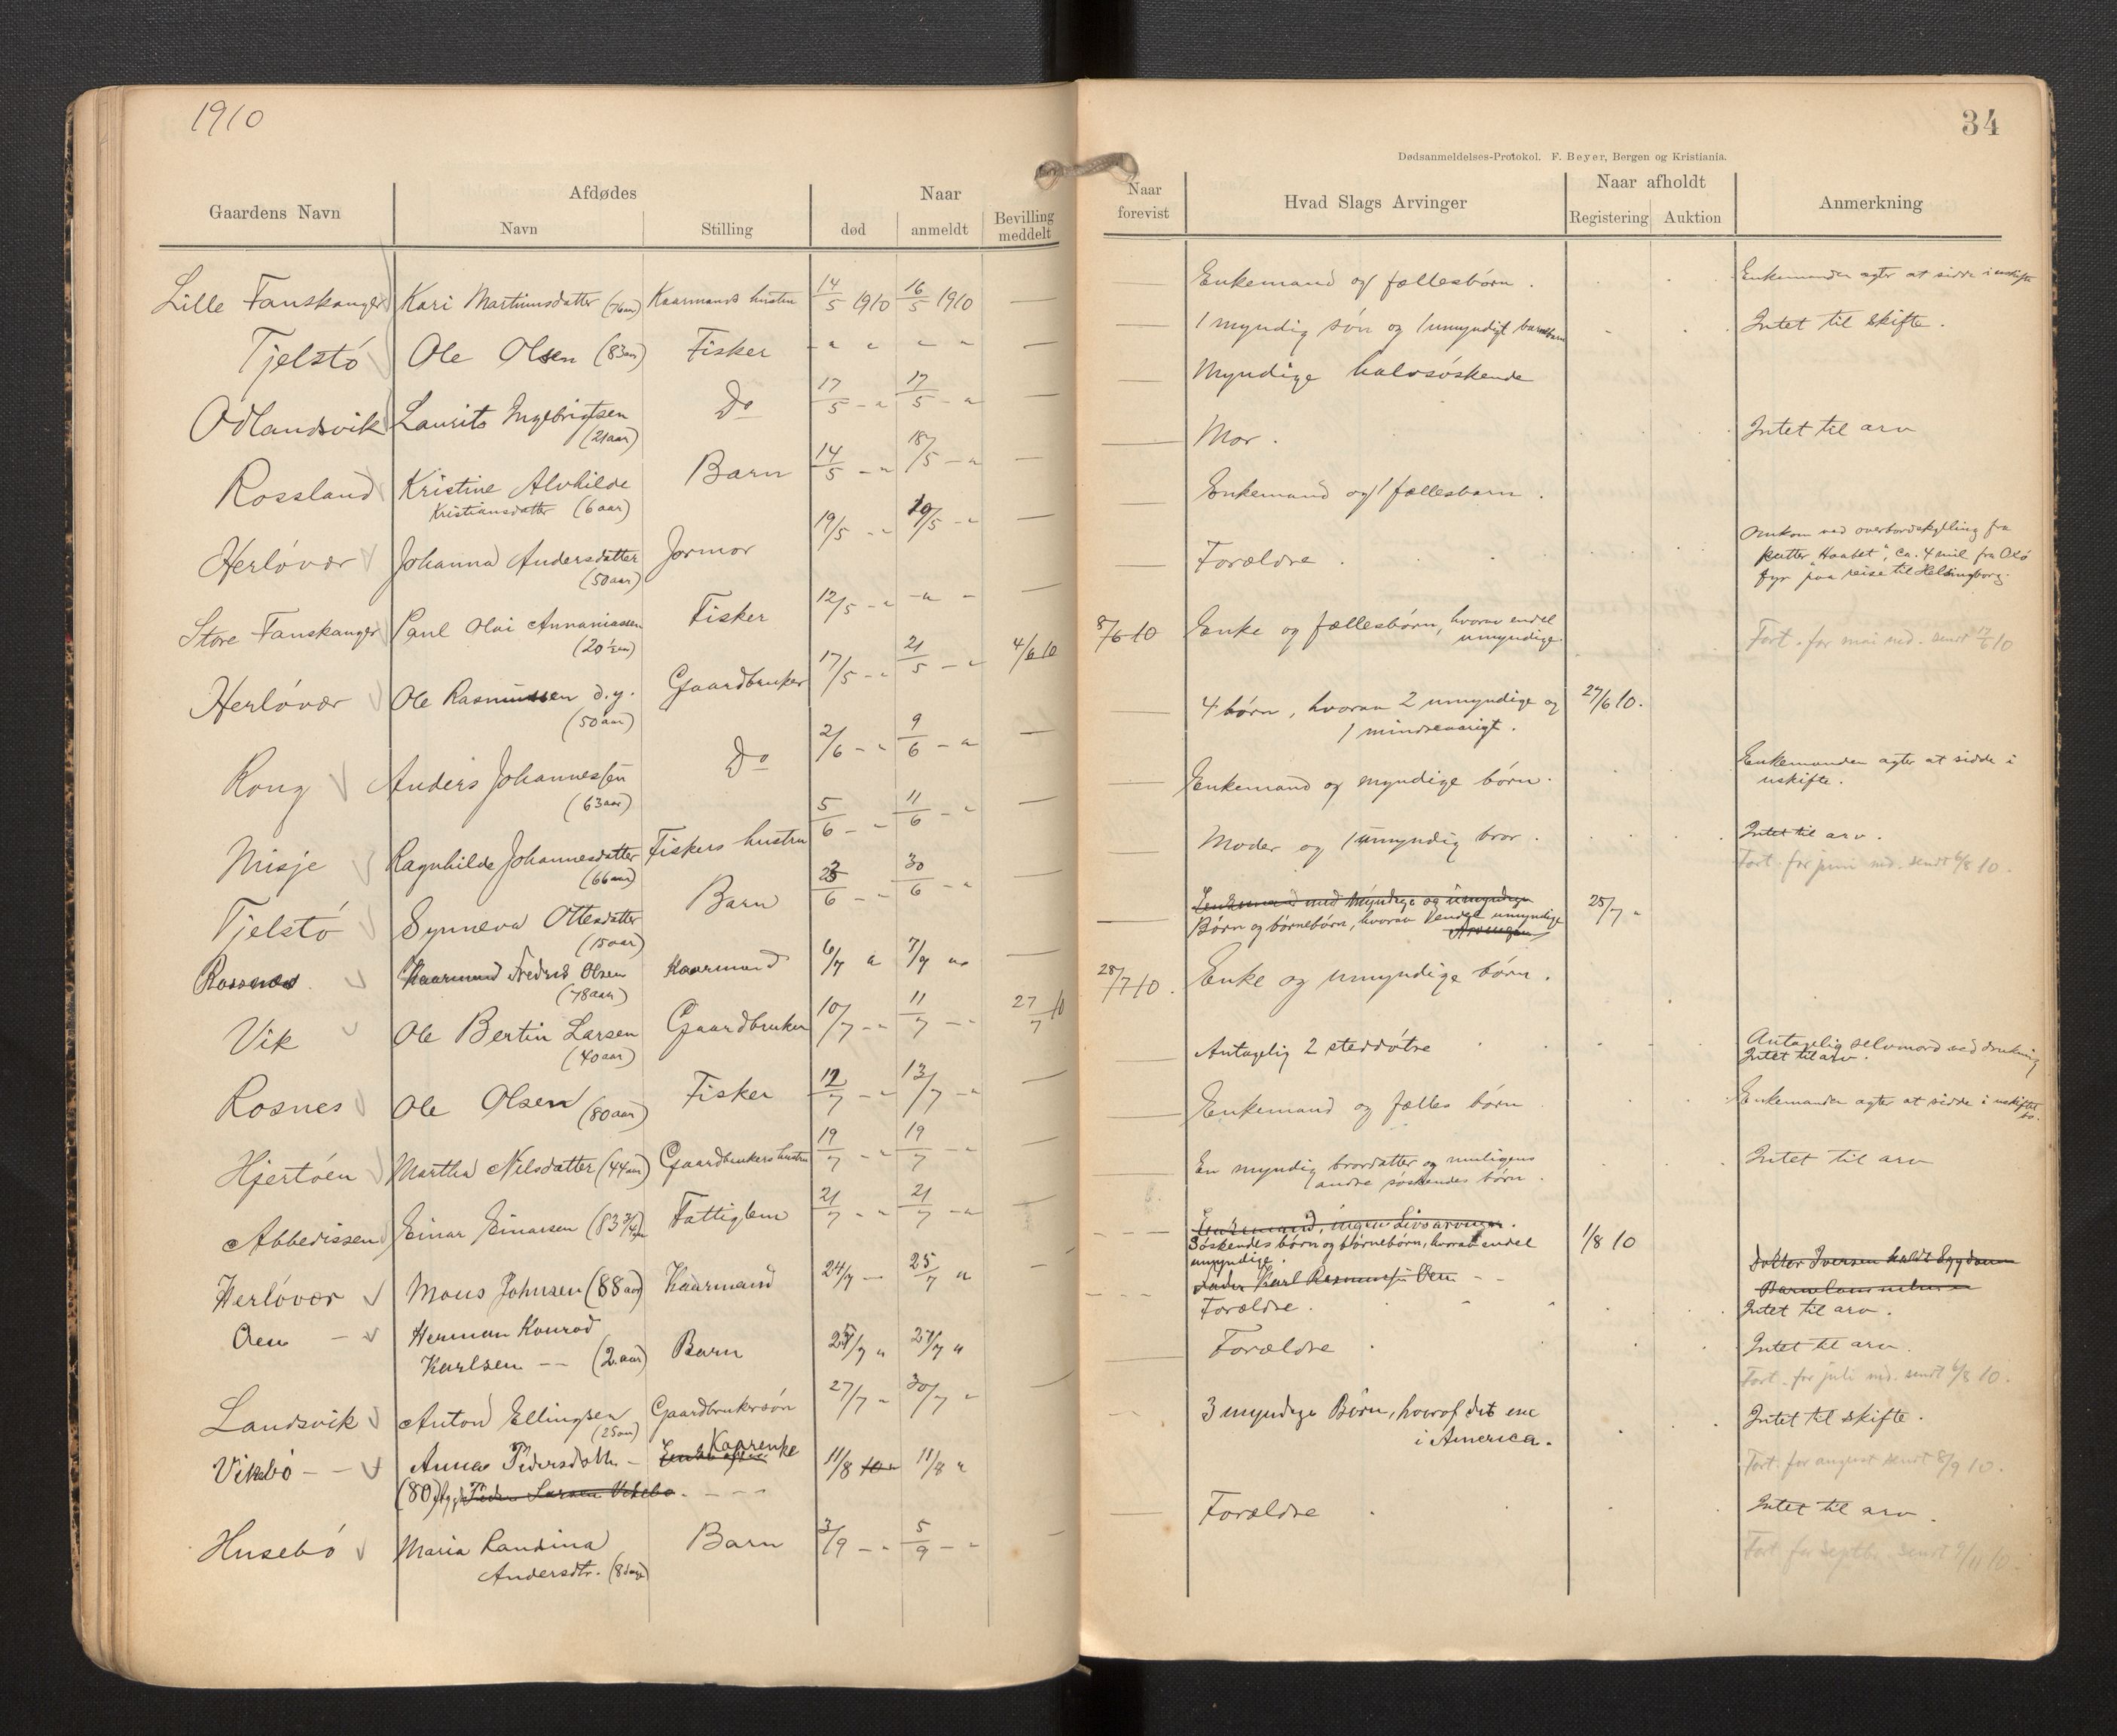 1910
Gaardens Navn
Afdødes
Navn
Stilling
Naar
død
anmeldt
Bevilling
meddelt
Lille Fanskanger Kari Martinusdatter (76 aar) Kaarmands hustru 14/5 1910 16/5 1910 —
Tjelstö Ole Olsen (83 aar) Fisker - " " - " —
Odlandsvik Laurits Ingebrigtsen Do 17/5 - " 17/5 - " —
(21 aar)
Rossland Kristine Alvhilde Barn 14/5 - " 18/5 - " —
Kristiansdatter (6 aar)
Herlövær Johanna Andersdatter Jormor 19/5 - " 19/5 - " —
(50 aar)
Store Fanskanger Paul Olai Annaniassen Fisker 12/5 - " - " - —
(20 ½ aar)
Herlövær Ole Rasmussen d.y. Gaardbruker 17/5 - " 21/5 - " 4/6 10
(50 aar)
Rong Anders Johannessen Do 2/6 - " 9/6 - " —
(63 aar)
Misje Ragnhilde Johannesdatter Fiskers hustru 5/6 - " 11/6 - " —
(66 aar)
Tjelstö Synneva Ottesdatter Barn 23/6 - " 30/6 - " —
(15 aar)
Rossnes Kaarmand Fredrik Olsen Kaarmand 6/7 " 7/7 " —
(78 aar)
Vik Ole Bertin Larsen Gaardbruker 10/7 - " 11/7 - " 27/7 10
(40 aar)
Rosnes Ole Olsen (80 aar) Fisker 12/7 - " 13/7 - " —
Hjertöen Martha Nilsdatter (44 aar) Gaardbrukers hustru 19/7 - " 19/7 - " —
Abbedissen Einar Einarsen (83 3/4 aar) Fattiglem 21/7 - " 21/7 - " —
Herlövær Mons Johnsen (88 aar) Kaarmand 24/7 — 25/7 " —
Oen - Herman Konrad
Karlsen -- (2 aar) Barn 25/7 " 27/7 "
Landsvik Anton Ellingsen Gaardbrukersön 27/7 - 30/7 " —
(25 aar)
Vikebö - - Anna Pedersdatter - Kaarenke 11/8 10 11/8 "
(80) Peder Larsen Vikebö. - - -
Husebö Maria Randina Barn 3/9 - " 5/9 - " —
Andersdtr. (8 dage)
34
Dødsanmeldelses-Protokol. F. Beyer, Bergen og Kristiania.
Naar
forevist
Hvad Slags Arvinger
Naar afholdt
Registering
Auktion
Anmerkning
— Enkemand og fællesbörn. Enkemanden agter at sidde i uskifte
— 1 myndig sön og 1 umyndigt barnebarn Intet til skifte.
— Myndige halvsöskende
— Mor. Intet til arv
— Enkemand og 1 fællesbarn.
— Forældre. Omkom ved overbordskylling fra
kutter "Haabet", ca. 4 mil fra Oxö
fyr paa reise til Helsingborg.
8/6 10 Enke og fællesbörn, hvorav endel
umyndige. Fort. for mai md. sendt 17/6 10
— 4 börn, hvorav 2 umyndige og 27/6 10.
1 mindreaarigt.
— Enkemand og myndige börn. Enkemanden agter at sidde i
uskifte.
— Moder og 1 umyndig bror. Intet til arv.
Fort. for juni md. sendt 6/8 10.
Enkemand med Myndige og umyndige
— Börn og börnebörn, hvorav endel umyndige 25/7 "
Arvinger
28/7 10. Enke og umyndige börn.
— Antagelig 2 steddötre Antagelig selvmord ved drukning
Intet til arv.
— Enkemand og fælles börn Enkemanden agter at sidde i uskiftet
bo.
— En myndig brordatter og muligens Intet til arv
andre söskendes börn.
- - - Enkemand, ingen Livsarvinger.
Söskendes börn og börnebörn, hvorav endel 1/8 10
umyndige.
- - - Fader Karl Rasmussen Oen - - Doktor Iversen
Forældre. Intet til arv.
— Forældre Intet til arv.
Fort. for juli md. sendt 6/8 10.
- - 3 myndige Börn, hvoraf det ene Intet til skifte.
i America.
Fort. for august sendt 8/9 10.
— Forældre Intet til arv.
Fort for septbr. sendt 9/11 10.